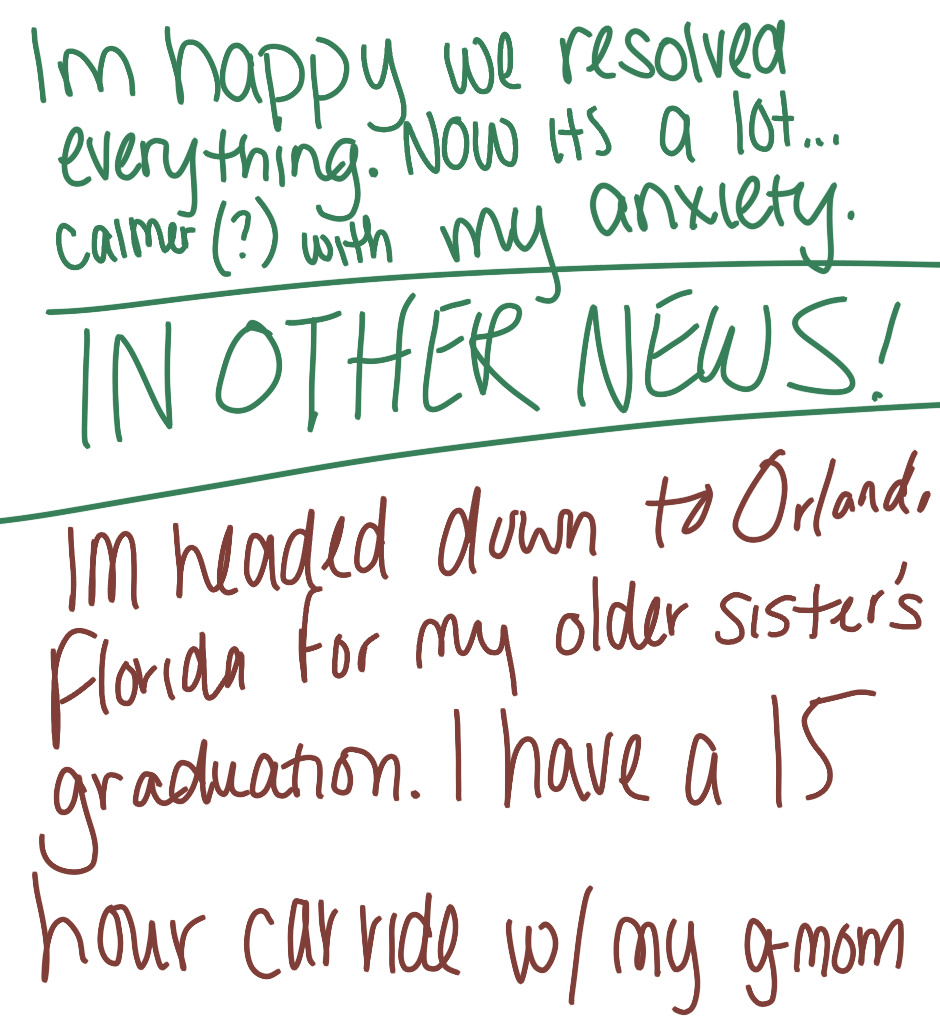 Im happy we resolved
everything. Now its a lot...
calmer (?) with my anxiety.
IN OTHER NEWS!
Im headed down to Orland,
Florida for my older sister's
graduation. I have a 15
hour car ride w/ my g-mom